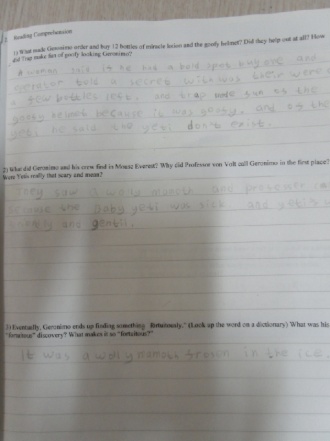 Reading Comprehension
1) What made Geronimo order and buy 12 bottles of miracle lotion and the goofy helmet? Did they help out at all? How
did Trap make fun of goofy looking Geronimo?
A woman said if he has a bald spot buy one and
told a secret was their were
a few bottles left. and trap made fun of the
goofy helmet because it was goofy, and of the
yeti he said the yeti don't exist.
2) What did Geronimo and his crew find in Mouse Everest? Why did Professor von Volt call Geronimo in the first place?
Were Yetis really that scary and mean?
They saw a wolly mammoth and
the baby yeti was sick and yetis
are gentil.
3) Eventually, Geronimo ends up finding something "fortuitously." (Look up the word on a dictionary) What was his
"fortuitous" discovery? What makes it so "fortuitous?"
It was a wolly mamoth frozen in the ice.